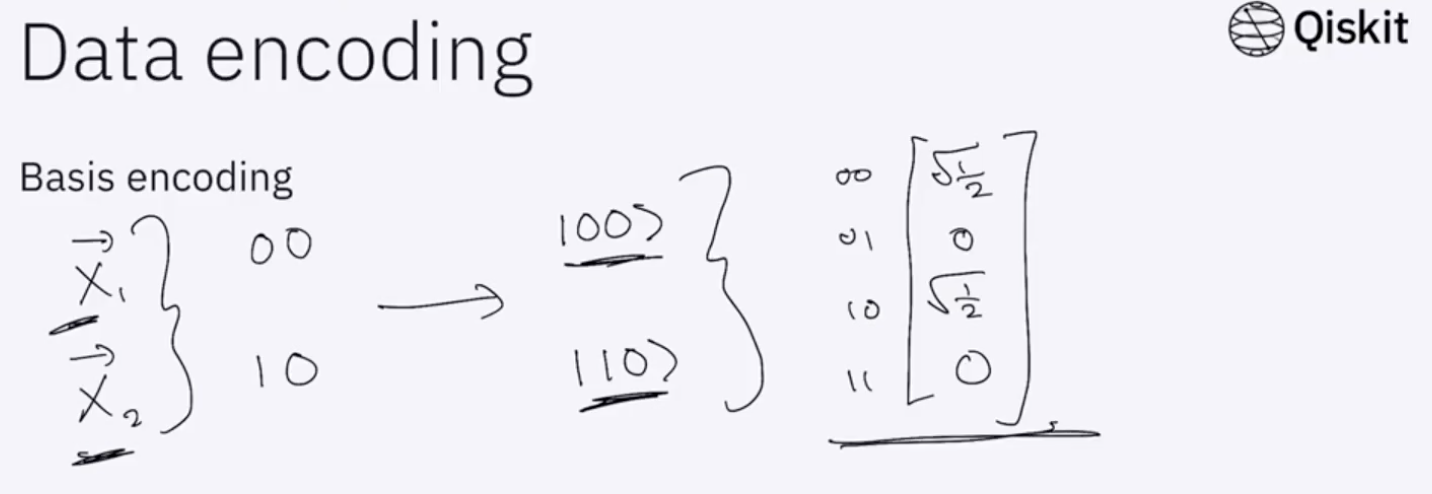 Data encoding
Qiskit
Basis encoding
X⃗₁ 00 → |00⟩
X⃗₂ 10 |10⟩
00 √½
01 0
10 √½
11 0